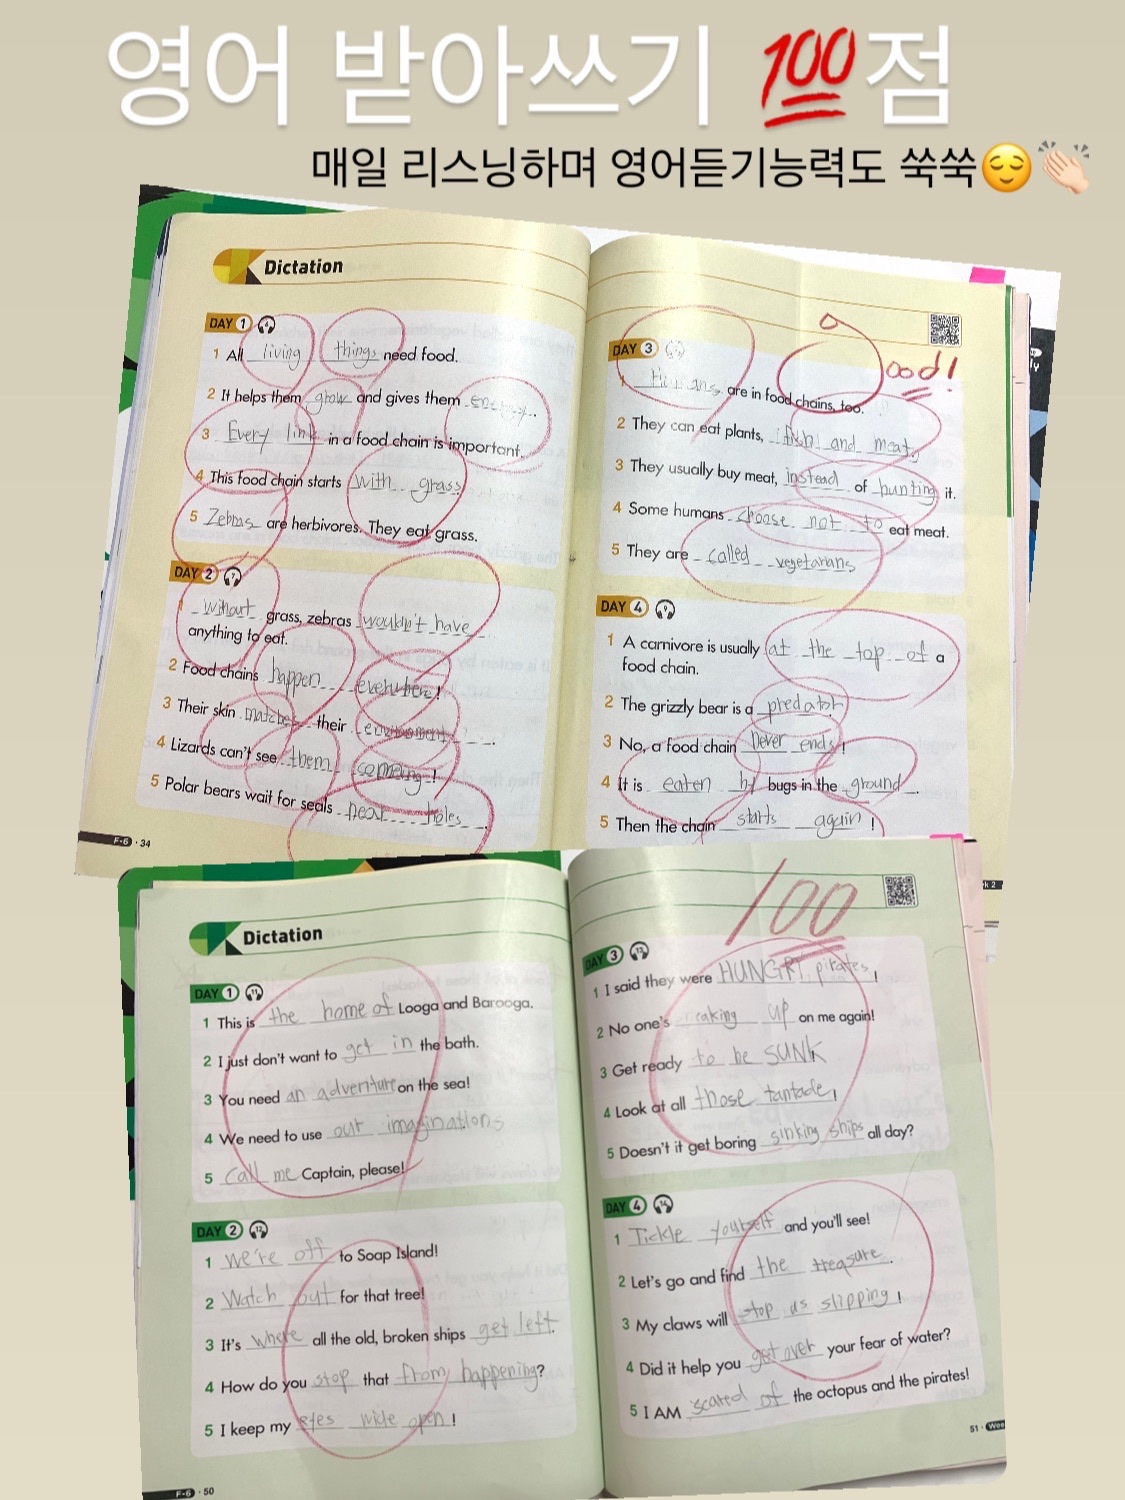 영어 받아쓰기 💯점
매일 리스닝하며 영어듣기능력도 쑥쑥😌👏🏻
Dictation
DAY 1
1 All living things need food.
2 It helps them grow and gives them
3 Every link in a food chain is important.
4 This food chain starts with grass
5 Zebras are herbivores. They eat grass.
DAY 2
1 without grass, zebras wouldn't have
anything to eat.
2 Food chains happen everywhere!
3 Their skin matches their environment.
4 Lizards can't see them coming!
5 Polar bears wait for seals near holes.
F-6 · 34
Good!
DAY 3
1 Humans are in food chains, too.
2 They can eat plants, fish and meat.
3 They usually buy meat, instead of hunting it.
4 Some humans choose not to eat meat.
5 They are called vegetarians
DAY 4
1 A carnivore is usually at the top of a
food chain.
2 The grizzly bear is a predator.
3 No, a food chain never ends!
4 It is eaten by bugs in the ground.
5 Then the chain starts again!
Dictation
DAY 1
1 This is the home of Looga and Barooga.
2 I just don't want to get in the bath.
3 You need an adventure on the sea!
4 We need to use our imaginations
5 Call me Captain, please!
DAY 2
1 We're off to Soap Island!
2 Watch out for that tree!
3 It's where all the old, broken ships get left.
4 How do you stop that from happening?
5 I keep my eyes wide open!
F-6 · 50
100
DAY 3
1 I said they were HUNGRY pirates!
2 No one's up on me again!
3 Get ready to be SUNK
4 Look at all those
5 Doesn't it get boring sinking ships all day?
DAY 4
1 Tickle yourself and you'll see!
2 Let's go and find the treasure.
3 My claws will stop us slipping!
4 Did it help you get over your fear of water?
5 I AM scared of the octopus and the pirates!
51